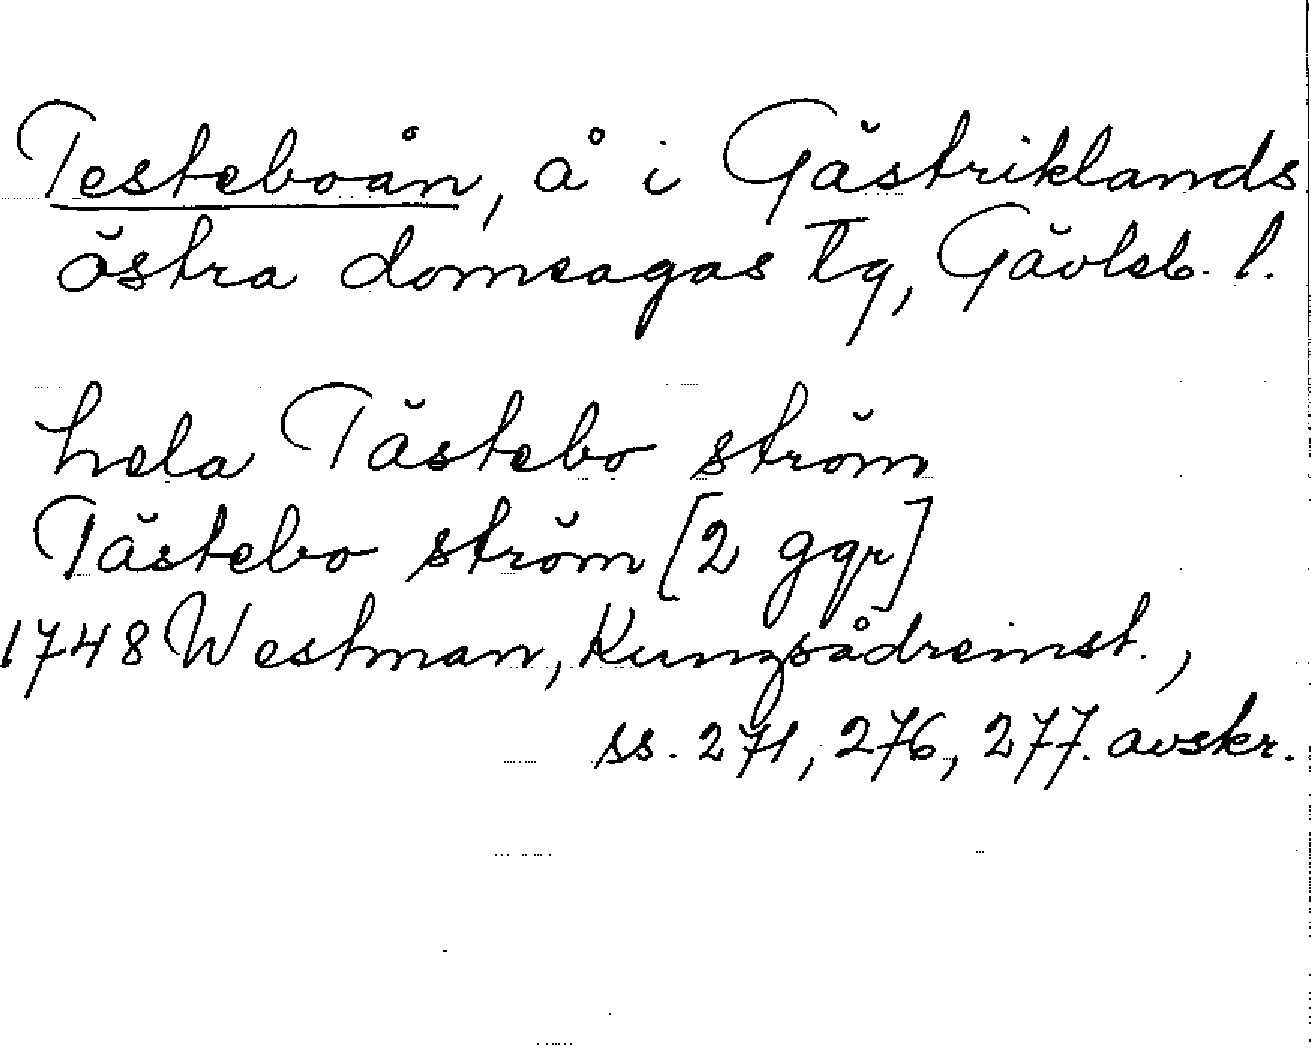 Testeboån, å i Gästriklands
östra domsagas tg, Gävleb. l.
hela Tästebo ström
Tästebo ström [2 ggr]
1748 Westman, Kungsådreinst.,
ss. 271, 276, 277. avskr.